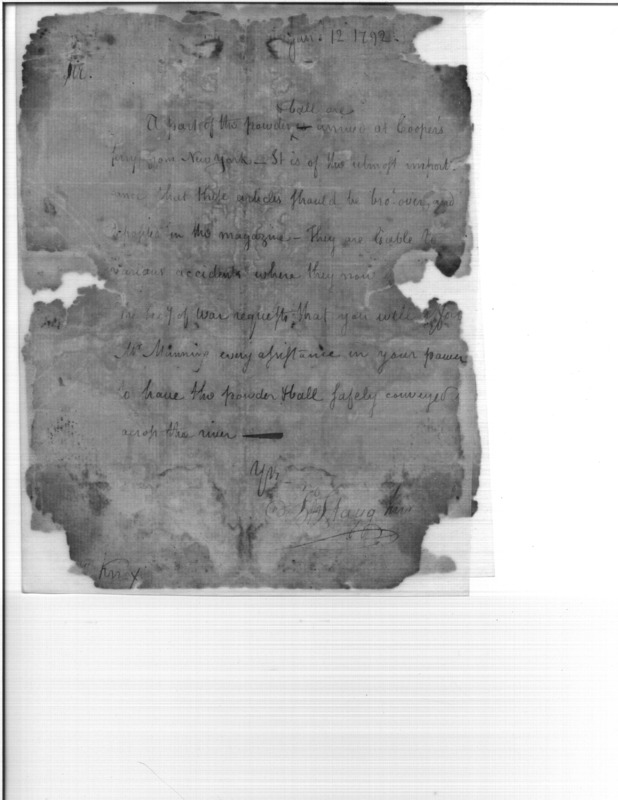 Jan. 12 1792.
Sir.
& ball are
A part of the powder arrived at Cooper's
ferry from New York – It is of the utmost import
ance that these articles should be bro't over and
in the magazine – They are liable to
various accidents where they now
of war requests, that you will
Mr. Manning every assistance in your power
to have the powder & ball safely conveyed
across the river
Yrs
Knox